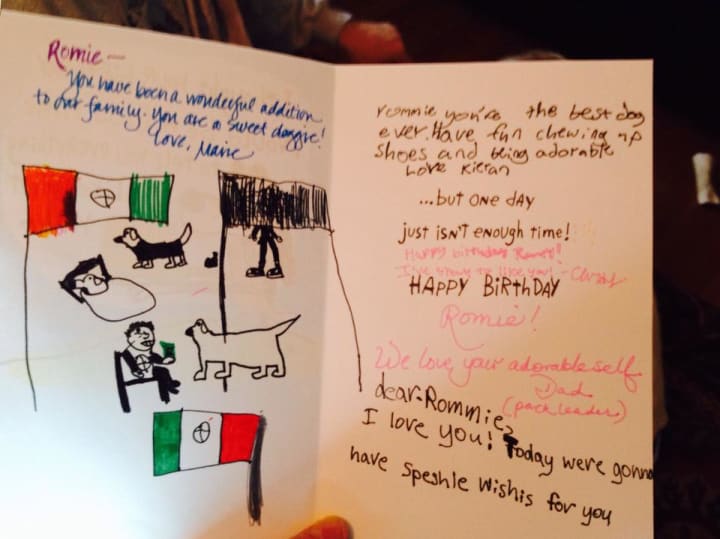 Romie —
You have been a wonderful addition
to our family. You are a sweet doggie!
Love,
rommie you're the best dog
ever. Have fun chewing up
shoes and being adorable
Love Kieran
...but one day
just isn't enough time!
Happy birthday Romie!
I've grown to like you! -
HAPPY BiRTHDAY
Romie!
We love your adorable self
Dad
(pack leader)
dear:Rommie,
I love you! Today were gonna
have speshle wishis for you